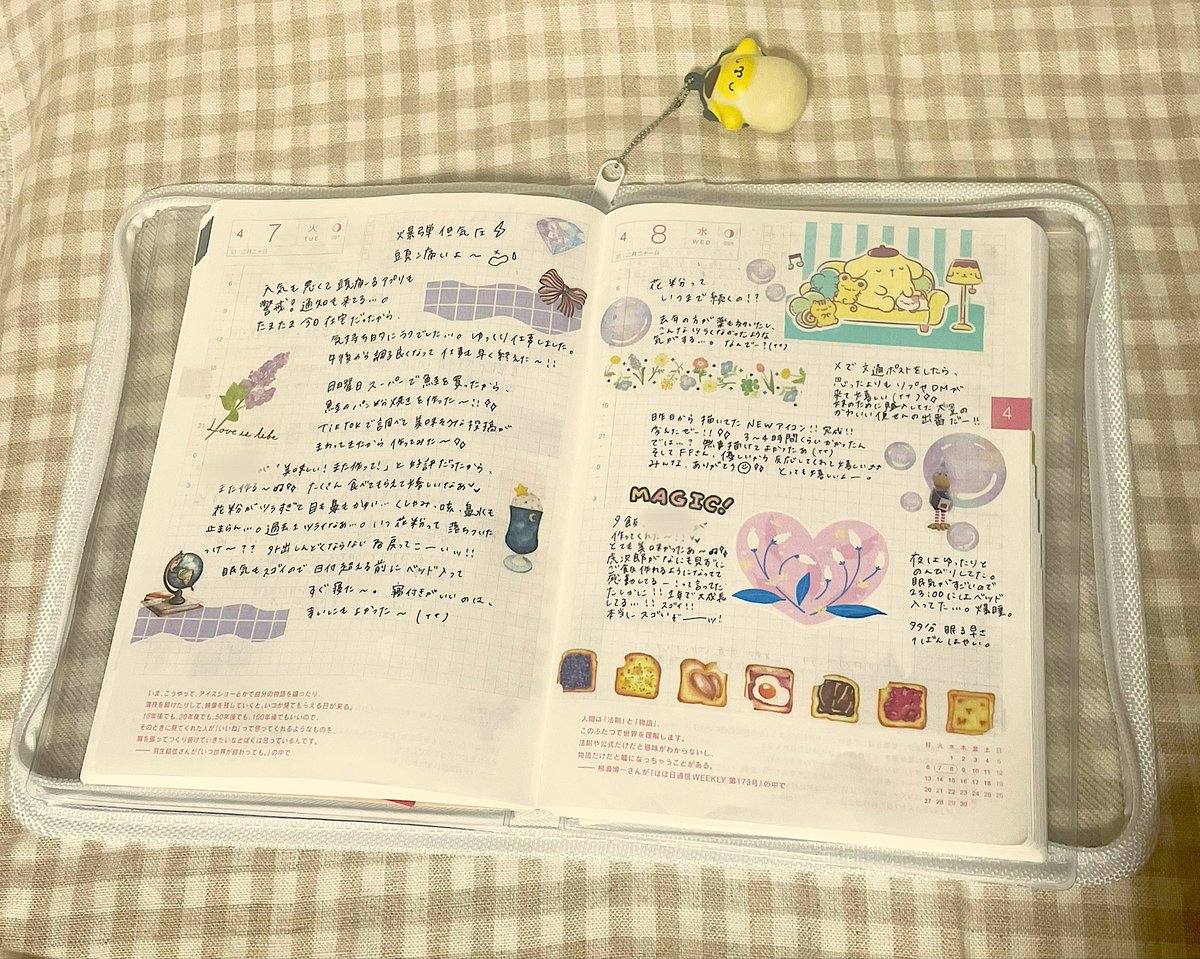 4 7 火
TUE
097
旧・二月二十日
爆弾低気圧
頭痛いよ〜
天気も悪くて頭痛ーるアプリも
警戒。通知も来てる…。
たまたま今日在宅だったから、
気持ち的にラクでした…。ゆっくり仕事しました。
午後から調子良くなって仕事も早く終えた〜!!
日曜日スーパーで魚を買ったから、
魚のパン粉焼きを作った〜!!
TikTokで調べて美味そうな投稿が
まわってきたから作ってみた〜
「美味しい!また作って!」と好評だったから、
また作る〜 たくさん食べてもらえて嬉しいなあ
花粉がツラすぎて目も鼻もかゆい…くしゃみ・咳・鼻水も
止まらん…。過去1ツライなあ…。いつ花粉って落ちついた
っけ〜?? 外出しんどくならない 戻ってこーいッ!!
眠気もスゴイので日付超える前にベッド入って
すぐ寝た〜。寝付きがいいのは、
いいことよかった〜(TT)
love se bebe
いま、こうやって、アイスショーとかで自分の物語を綴ったり、
演技を続けたりして、映像を残していくと、いつか見てもらえる日が来る。
10年後でも、20年後でも、50年後でも、100年後でもいいので、
そのときに見てくれた人が「いいね」って思ってくれるようなものを、
胸を張ってつくり続けていきたいなとぼくは思っているんです。
—— 羽生結弦さんが『いつ世界が終わっても。』の中で
4 8 水
WED
098
旧・二月二十一日
花粉って
いつまで続くの!?
去年の方が薬も効いたし、
こんなツラくなかったような
気がする…。なんでー?(TT)
Xで交通ポストをしたら、
思ったよりもリプやDMが
来て嬉しい(TT)
のために購入してた
かわいい便せんの出番だー!!
4
昨日から描いてたNEWアイコン!!完成!!
考えたぜー!! 3〜4時間くらいかかったん
では…? 無事描けてよかったあ(TT)
そしてFFさん、優しいから反応してくれて嬉しい
みんな、ありがとう とっても嬉しいよー。
MAGIC!
夕飯
作ってくれた〜!!
とても美味かったあ〜
虎次郎がなにも見ずに
ご飯作れるようになってて
感動してるー!って言ってた
たしかに!!1年で大成長
してる…!!スゴイ!!
本当にスゴいぞーーッ!
夜はゆったりと
のんびりしてた。
眠気がすごいので
23:00にはベッド
入ってた…。爆睡。
多分 眠る早さ
1ばんはやい。
人間は「法則」と「物語」、
このふたつで世界を理解します。
法則や公式だけだと意味がわからないし、
物語だけだと嘘になっちゃうことがある。
—— 柳瀬博一さんが『ほぼ日通信WEEKLY 第173号』の中で
月 火 水 木 金 土 日
1 2 3 4 5
6 7 8 9 10 11 12
13 14 15 16 17 18 19
20 21 22 23 24 25 26
27 28 29 30